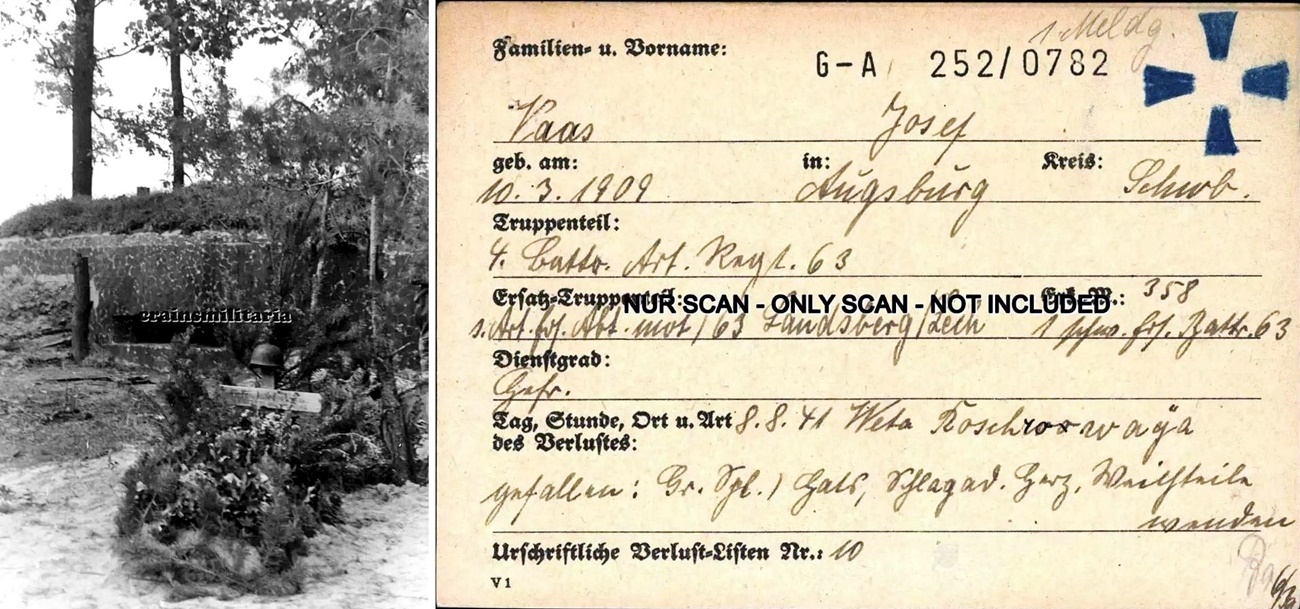 crainsmilitaria
1. Meldg.
Familien- u. Vorname:
G-A 252/0782
Vaas Josef
geb. am: in: Kreis:
10.3.1909 Augsburg Schwb.
Truppenteil:
4. Battr. Art. Regt. 63
Ersatz-Truppenteil: 358
NUR SCAN - ONLY SCAN - NOT INCLUDED
s. Art. Ers. Abt. mot/63 Landsberg/Lech 1 schw. Ers. Battr. 63
Dienstgrad:
Gefr.
Tag, Stunde, Ort u. Art 8.8.41 Weta
des Verlustes:
gefallen: Gr. Spl. / Hals, Schlagad. Herz, Weichteile
wunden
Urschriftliche Verlust-Listen Nr.: 10
V 1